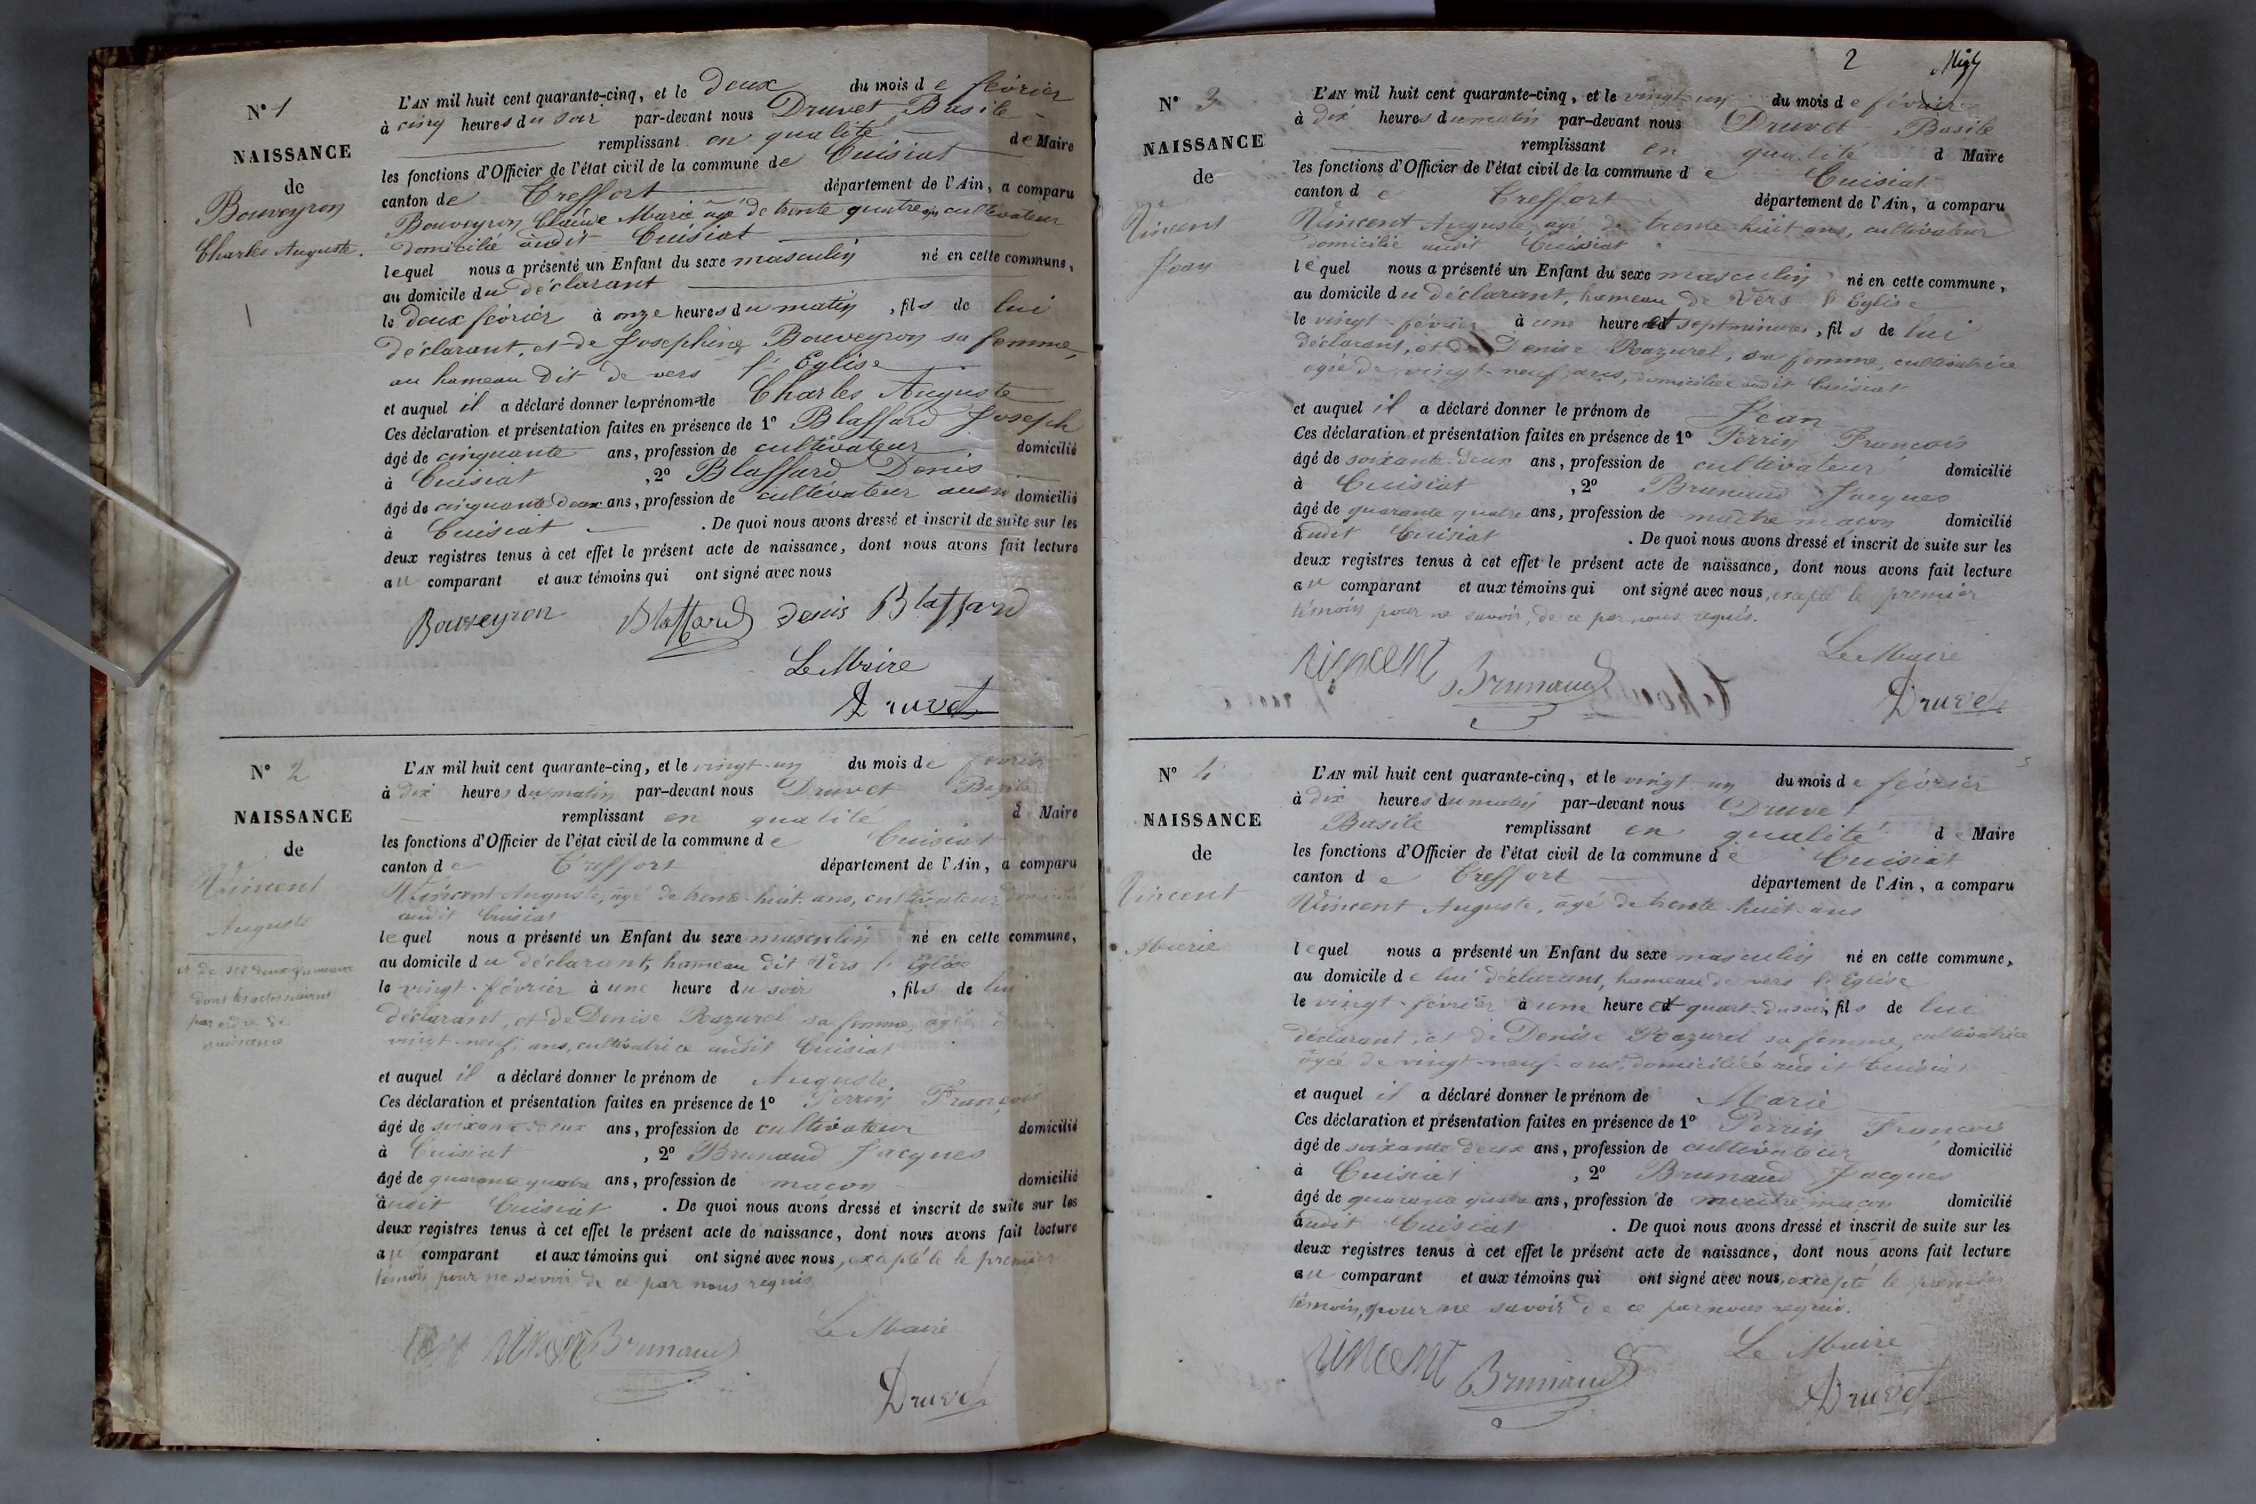 N° 1
NAISSANCE
de
Bouveyron
Charles Auguste.
L'AN mil huit cent quarante-cinq, et le deux du mois de février
à cinq heures du soir par-devant nous Druvet Basile
remplissant en qualité de Maire
les fonctions d'Officier de l'état civil de la commune de Cuisiat
canton de Treffort département de l'Ain, a comparu
Bouveyron Claude Marie âgé de trente quatre ans cultivateur
domicilié audit Cuisiat
lequel nous a présenté un Enfant du sexe masculin né en cette commune,
au domicile du déclarant
le deux février à onze heures du matin, fils de lui
déclarant, et de Josephine Bouveyron sa femme,
au hameau dit de vers l'Eglise
et auquel il a déclaré donner les prénoms de Charles Auguste
Ces déclaration et présentation faites en présence de 1° Blaffard Joseph
âgé de cinquante ans, profession de cultivateur domicilié
à Cuisiat, 2° Blaffard Denis
âgé de cinquante deux ans, profession de cultivateur aussi domicilié
à Cuisiat. De quoi nous avons dressé et inscrit de suite sur les
deux registres tenus à cet effet le présent acte de naissance, dont nous avons fait lecture
au comparant et aux témoins qui ont signé avec nous
Bouveyron Blaffard denis Blaffard
Le Maire
Druvet
N° 2
NAISSANCE
de
Vincent
Auguste
et de ses deux jumeaux
dont les actes suivent
par ordre de
naissance
L'AN mil huit cent quarante-cinq, et le vingt-un du mois de février
à dix heures du matin par-devant nous Druvet Basile
remplissant en qualité d Maire
les fonctions d'Officier de l'état civil de la commune de Cuisiat
canton de Treffort département de l'Ain, a comparu
Vincent Auguste, âgé de trente-huit ans, cultivateur, domicilié
audit Cuisiat
lequel nous a présenté un Enfant du sexe masculin né en cette commune,
au domicile du déclarant, hameau dit Vers l'Eglise
le vingt-février à une heure du soir, fils de lui
déclarant, et de Denise Razurel sa femme, agée de
vingt-neuf ans, cultivatrice audit Cuisiat
et auquel il a déclaré donner le prénom de Auguste
Ces déclaration et présentation faites en présence de 1° Perrin François
âgé de soixante-deux ans, profession de cultivateur domicilié
à Cuisiat, 2° Brunaud Jacques
âgé de quarante quatre ans, profession de macon domicilié
audit Cuisiat. De quoi nous avons dressé et inscrit de suite sur les
deux registres tenus à cet effet le présent acte de naissance, dont nous avons fait lecture
au comparant et aux témoins qui ont signé avec nous, excepté le premier
témoin pour ne savoir de ce par nous requis
Vincent Brunaud
Le Maire
Druvet
2
N° 3
NAISSANCE
de
Vincent
Jean
L'AN mil huit cent quarante-cinq, et le vingt-un du mois de février
à dix heures du matin par-devant nous Druvet Basile
remplissant en qualité d Maire
les fonctions d'Officier de l'état civil de la commune de Cuisiat
canton de Treffort département de l'Ain, a comparu
Vincent Auguste, agé de trente-huit ans, cultivateur
domicilié audit Cuisiat
lequel nous a présenté un Enfant du sexe masculin né en cette commune,
au domicile du déclarant, hameau de Vers l'Eglise
le vingt-février à une heure et sept minutes, fils de lui
déclarant, et de Denise Razurel, sa femme, cultivatrice
agée de vingt-neuf ans, domiciliée audit Cuisiat
et auquel il a déclaré donner le prénom de Jean
Ces déclaration et présentation faites en présence de 1° Perrin François
âgé de soixante-deux ans, profession de cultivateur domicilié
à Cuisiat, 2° Brunaud Jacques
âgé de quarante quatre ans, profession de maître macon domicilié
audit Cuisiat. De quoi nous avons dressé et inscrit de suite sur les
deux registres tenus à cet effet le présent acte de naissance, dont nous avons fait lecture
au comparant et aux témoins qui ont signé avec nous, excepté le premier
témoin pour ne savoir, de ce par nous requis.
Vincent Brunaud
Le Maire
Druvet
N° 4
NAISSANCE
de
Vincent
Marie
L'AN mil huit cent quarante-cinq, et le vingt-un du mois de février
à dix heures du matin par-devant nous Druvet
Basile remplissant en qualité de Maire
les fonctions d'Officier de l'état civil de la commune de Cuisiat
canton de Treffort département de l'Ain, a comparu
Vincent Auguste, agé de trente-huit ans
lequel nous a présenté un Enfant du sexe masculin né en cette commune,
au domicile de lui déclarant, hameau de vers l'Eglise
le vingt-février à une heure et quart du soir, fils de lui
déclarant, et de Denise Razurel sa femme, cultivatrice
âgée de vingt-neuf ans, domiciliée audit Cuisiat
et auquel il a déclaré donner le prénom de Marie
Ces déclaration et présentation faites en présence de 1° Perrin François
âgé de soixante deux ans, profession de cultivateur domicilié
à Cuisiat, 2° Brunaud Jacques
âgé de quarante quatre ans, profession de maitre macon domicilié
audit Cuisiat. De quoi nous avons dressé et inscrit de suite sur les
deux registres tenus à cet effet le présent acte de naissance, dont nous avons fait lecture
au comparant et aux témoins qui ont signé avec nous, excepté le premier
témoin, pour ne savoir de ce par nous requis.
Vincent Brunaud
Le Maire
Druvet